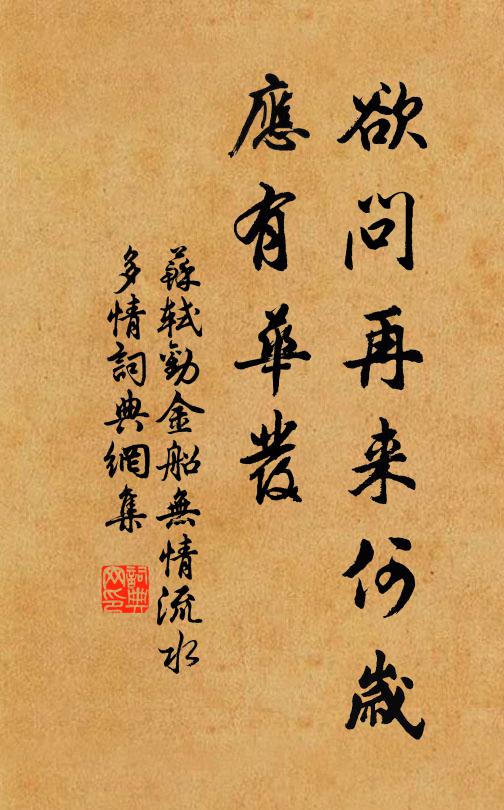 欲問再来何歲
應有華發
蘇軾勸金船無情流水
多情詞典網集
詞典
网印